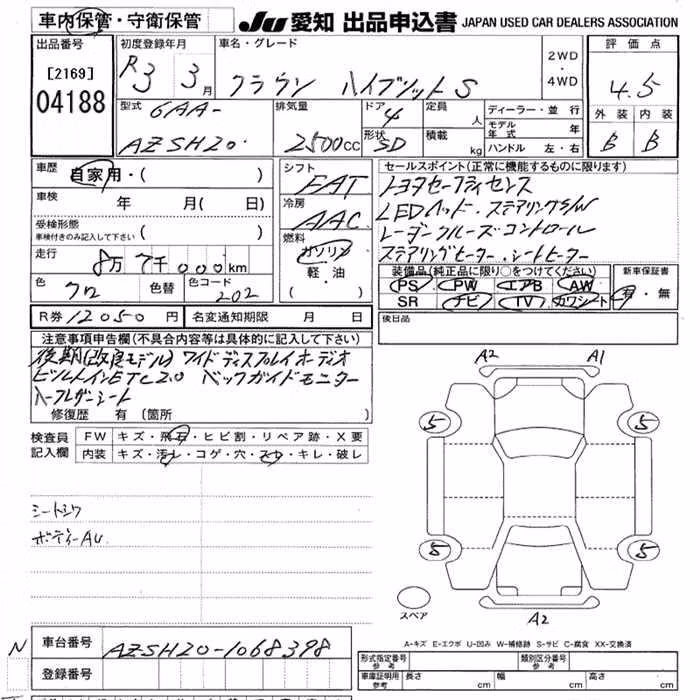 車内保管・守衛保管
JU 愛知 出品申込書 JAPAN USED CAR DEALERS ASSOCIATION
出品番号
[2169]
04188
初度登録年月
R3 3月
車名・グレード
クラウン ハイブリットS
2WD
・
4WD
評価点
4.5
外装 内装
B B
型式
6AA-
AZSH20
排気量
2500cc
ドア
4
形状
SD
定員
人
積載
kg
ディーラー・並行
モデル年式 年
ハンドル 左・右
車歴
自家用・( )
車検 年 月( 日)
受検形態
車検付きのみ記入して下さい ( )
走行
8万7千000km
色 クロ 色替 色コード 202
シフト
FAT
冷房
AAC
燃料
ガソリン
軽・油
( )
セールスポイント(正常に機能するものに限ります)
トヨタセーフティセンス
LEDヘッド・ステアリングS/W
レーダークルーズコントロール
ステアリングヒーター・シートヒーター
装備品(純正品に限り○をつけてください)
PS PW エアB AW
SR ナビ TV カワシート
新車保証書
有・無
R券 12050円 名変通知期限 月 日
後日品
注意事項申告欄(不具合内容等は具体的に記入して下さい)
後期(改良モデル) ワイドディスプレイオーディオ
ビルトインETC2.0 バックガイドモニター
ハーフレザーシート
修復歴 有 〔箇所 〕
検査員
記入欄
FW キズ・飛石・ヒビ割・リペア跡・X要
内装 キズ・汚れ・コゲ・穴・スレ・キレ・破レ
シートシワ
ボディーAU
A2 A1
5 5
5 5
スペア
A2
A-キズ E-エクボ U-凹み W-補修跡 S-サビ C-腐食 XX-交換済
N
車台番号 AZSH20-1068398
登録番号
形式指定番号
参考
類別区分番号
参考
車庫証明用
参考
長さ cm 幅 cm 高さ cm